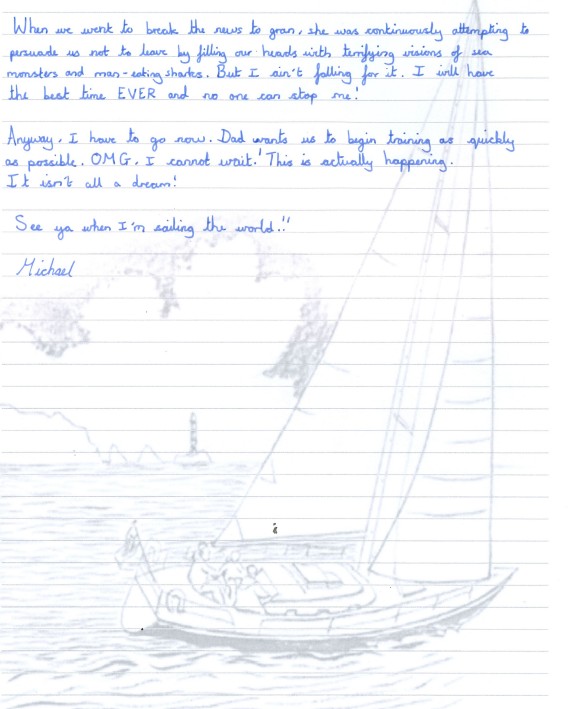 When we went to break the news to gran, she was continuously attempting to
persuade us not to leave by filling our heads with terrifying visions of sea
monsters and man-eating sharks. But I ain't falling for it. I will have
the best time EVER and no one can stop me!
Anyway, I have to go now. Dad wants us to begin training as quickly
as possible. OMG, I cannot wait! This is actually happening.
It isn't all a dream!
See ya when I'm sailing the world!!
Michael